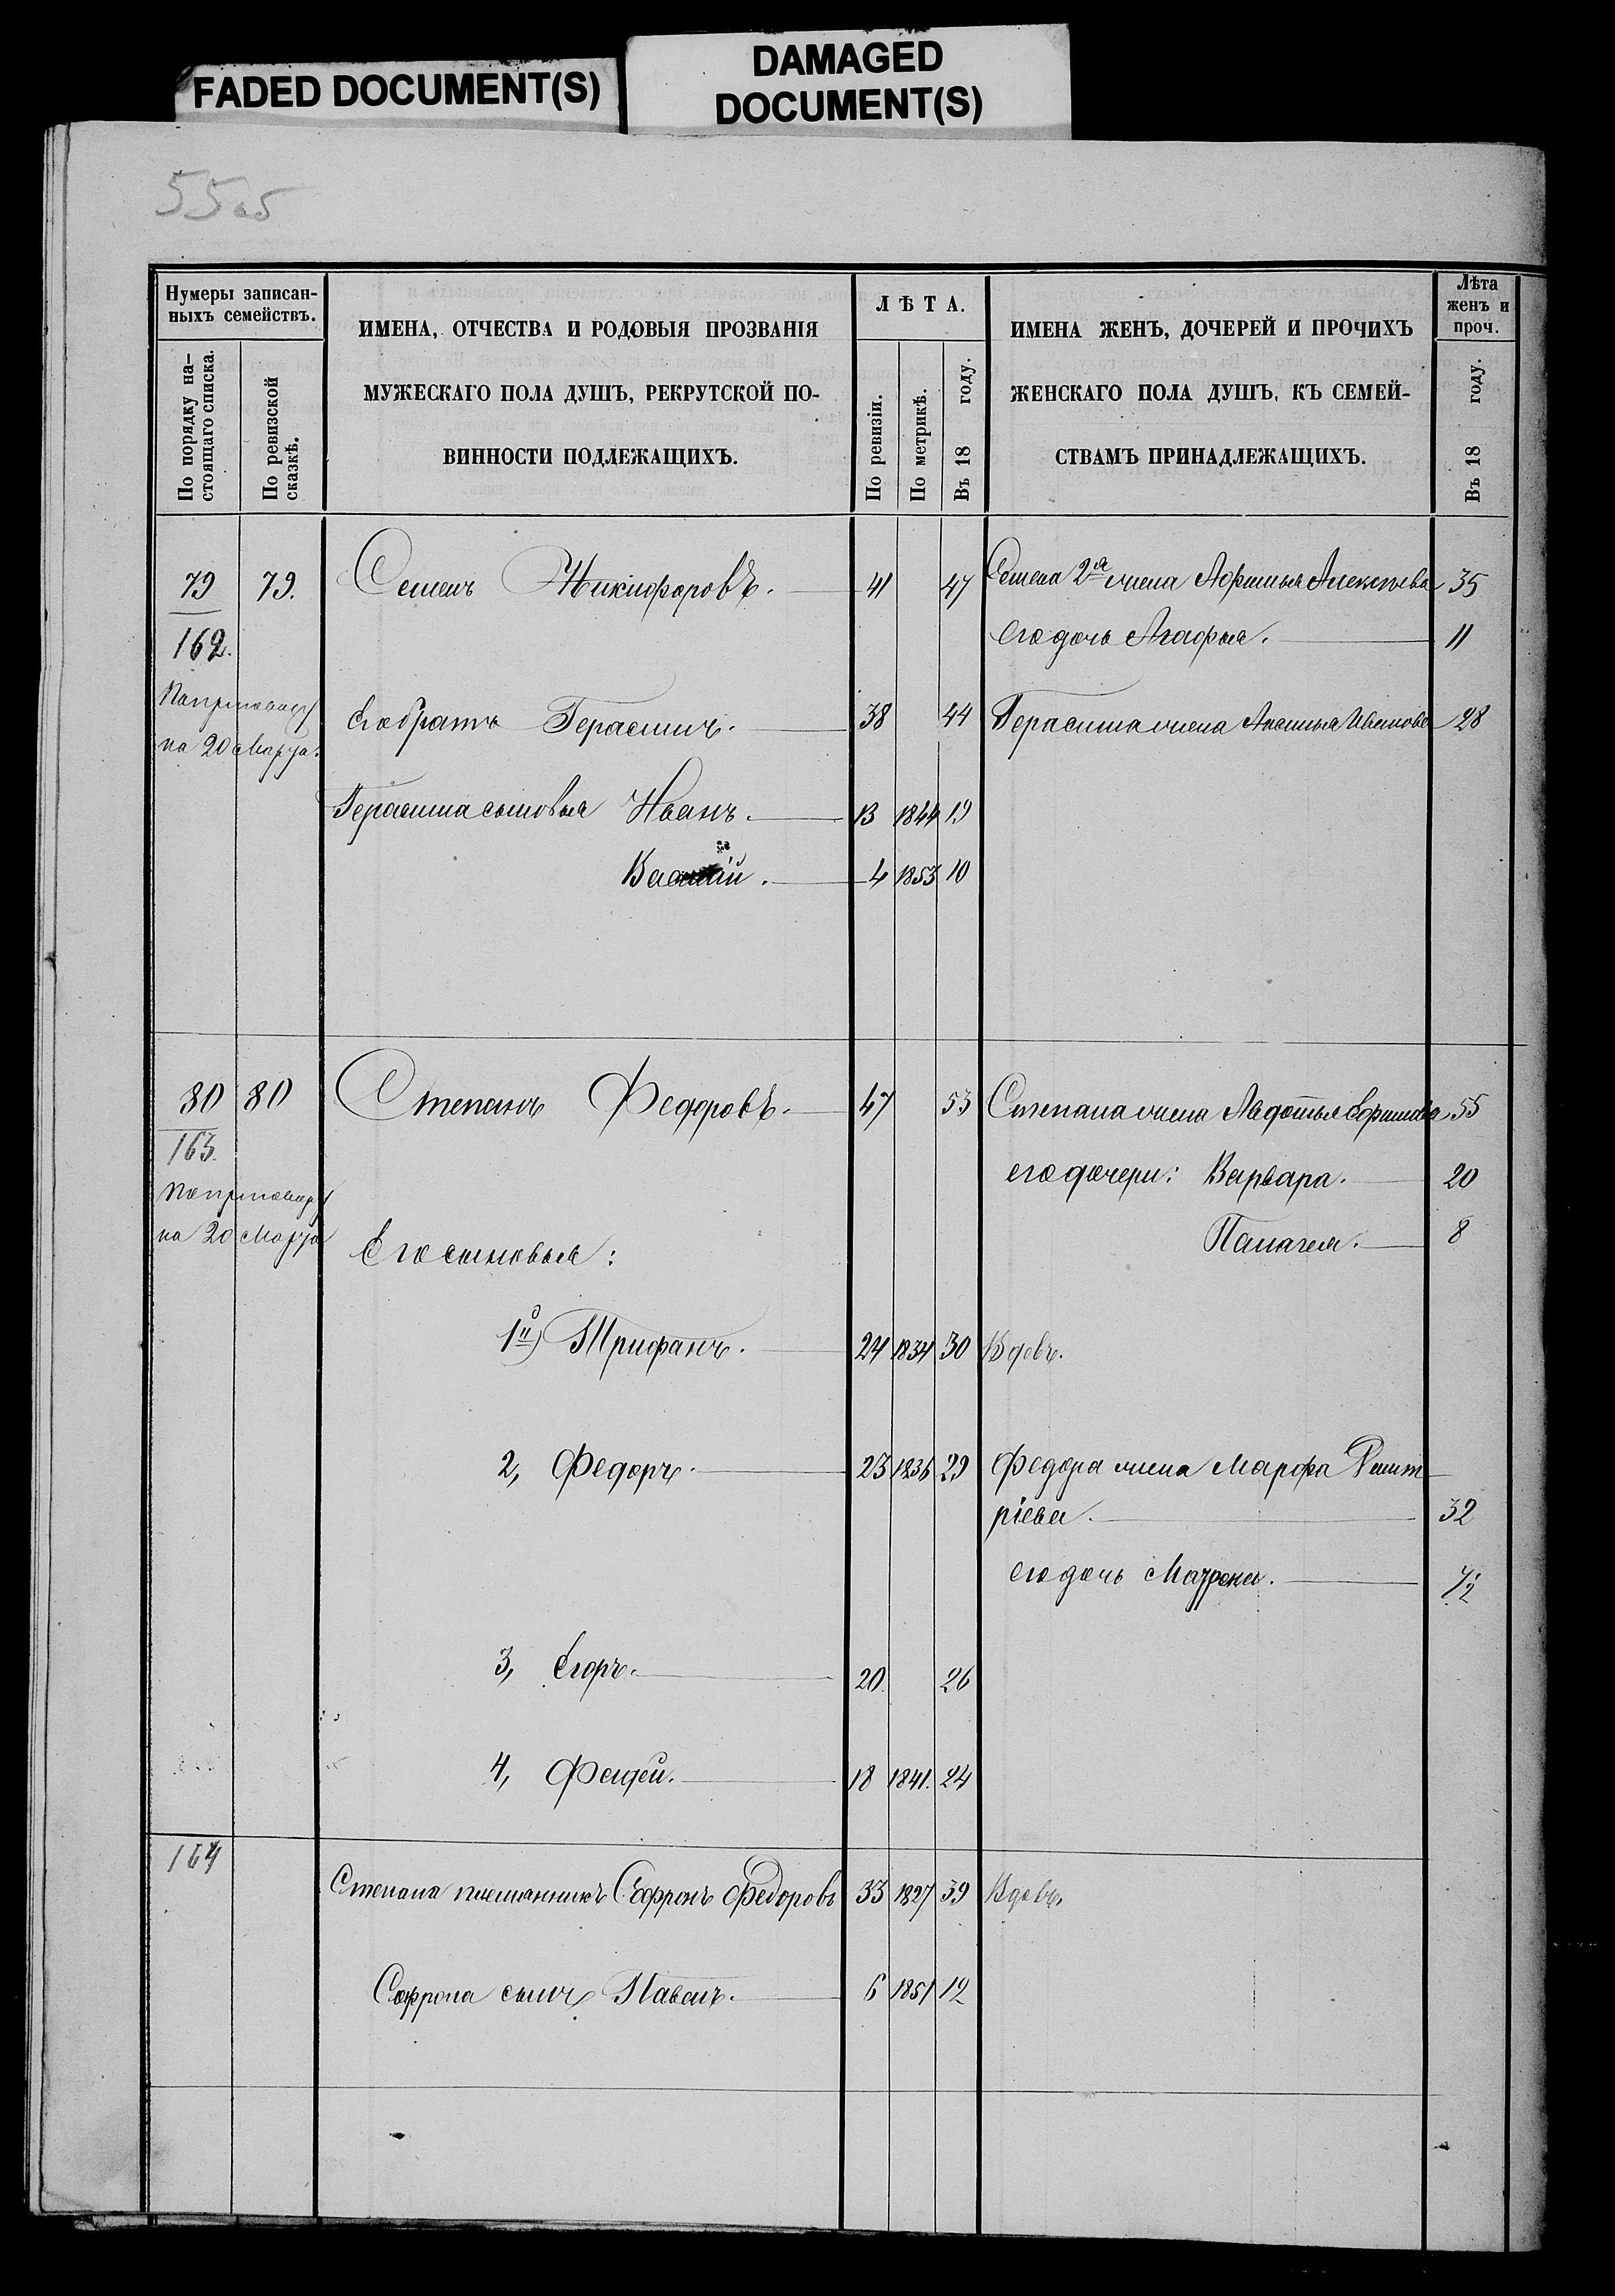 FADED DOCUMENT(S)
DAMAGED
DOCUMENT(S)
55об
Нумеры записан-
ныхъ семействъ.
По порядку на-
стоящаго списка.
По ревизской
сказкѣ.
ИМЕНА, ОТЧЕСТВА И РОДОВЫЯ ПРОЗВАНІЯ
МУЖЕСКАГО ПОЛА ДУШЪ, РЕКРУТСКОЙ ПО-
ВИННОСТИ ПОДЛЕЖАЩИХЪ.
ЛѢТА.
По ревизіи.
По метрикѣ.
Въ 18 году.
ИМЕНА ЖЕНЪ, ДОЧЕРЕЙ И ПРОЧИХЪ
ЖЕНСКАГО ПОЛА ДУШЪ, КЪ СЕМЕЙ-
СТВАМЪ ПРИНАДЛЕЖАЩИХЪ.
Лѣта
женъ и
проч.
Въ 18 году.
79 79. Семенъ Никифоровъ. 41 47 Семена 2я жена Афимья Алексѣева 35
162. его дочь Агафья. 11
Его братъ Герасимъ. 38 44 Герасима жена Анисья Иванова 28
на 20 Марта.
Герасима сыновья Иванъ. 13 1844 19
Василій. 4 1853 10
80 80 Степанъ Федоровъ. 47 53 Степана жена Авдотья Ефимова 55
163. его дочери: Варвара. 20
на 20 Марта
Его сыновья: Палагея. 8
1й) Трифанъ. 24 1834 30 Вдовъ.
2, Федоръ. 23 1836 29 Федора жена Марфа Димит-
ріева. 32
его дочь Матрена. 1/2
3, Егоръ. 20. 26
4, Фадей. 18 1841. 24
164
Степана племянникъ Софронъ Федоровъ 33 1827 39 Вдовъ.
Софрона сынъ Павелъ. 6 1851 12